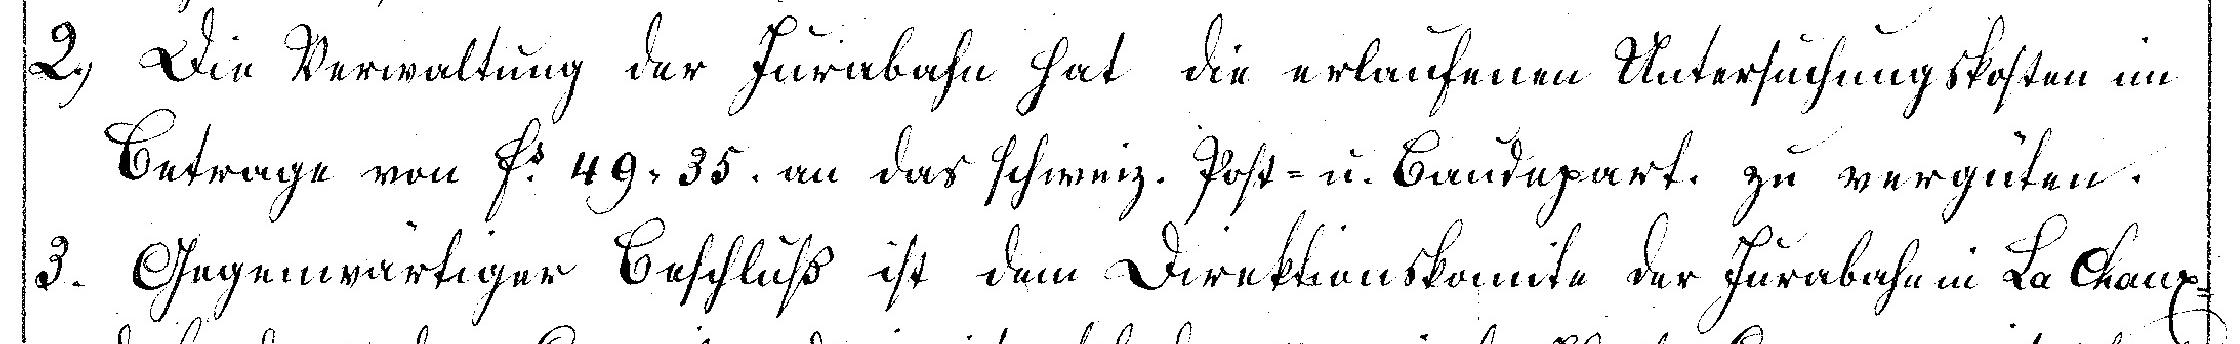 2., Die Verwaltung der Jurabahn hat die erlaufenen Untersuchungskosten im
Betrage von frs. 49.35. an das schweiz. Post= u. Baudepart. zu vergüten.
3. Gegenwärtiger Beschluß ist dem Direktionskomite der Jurabahn in La Chaux=